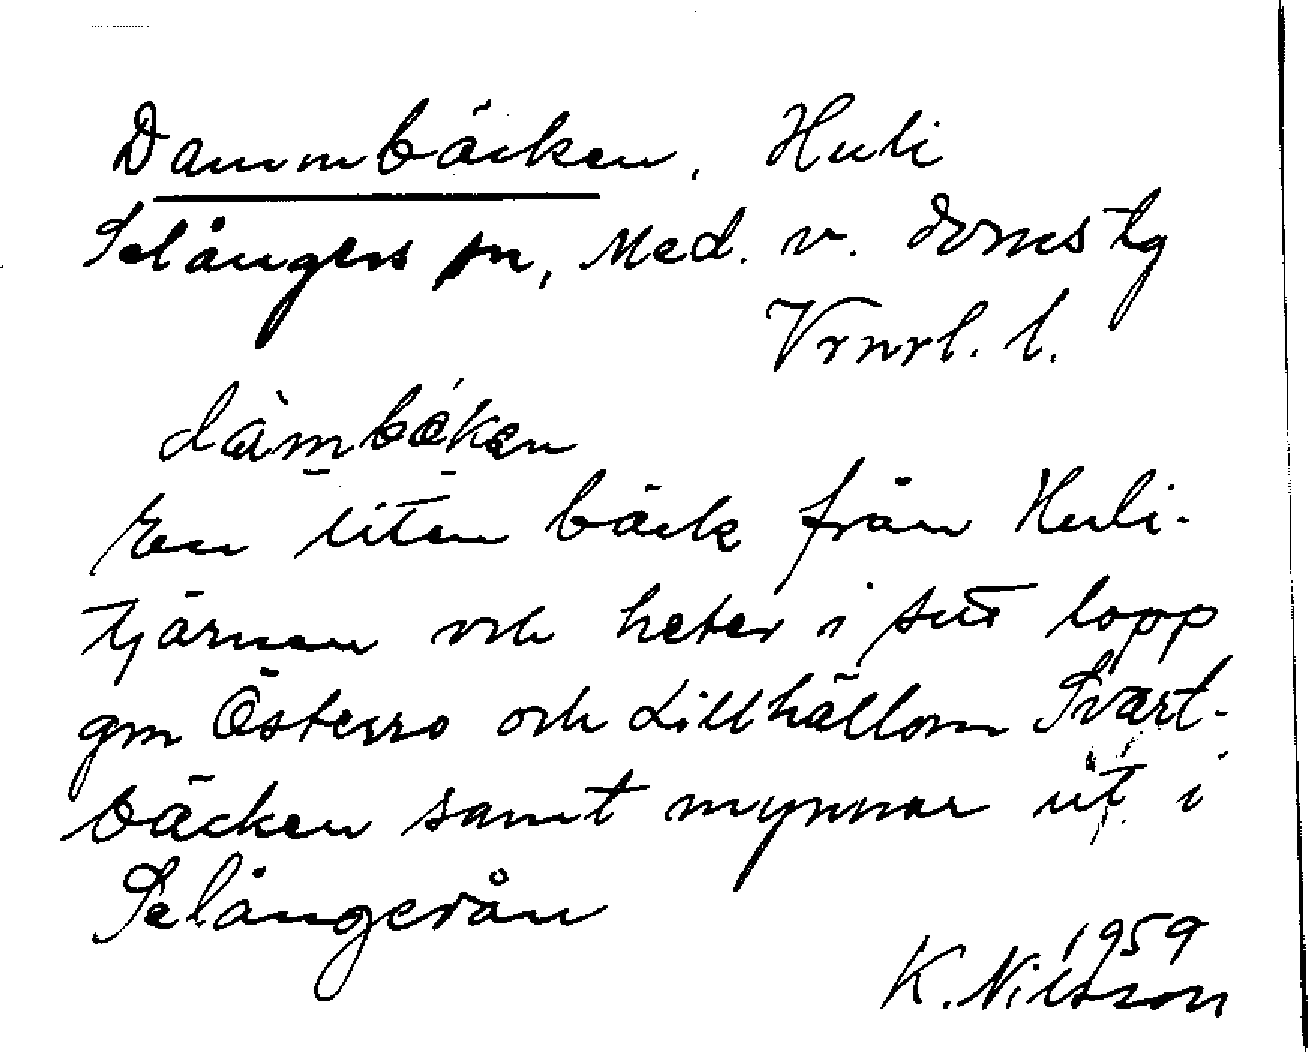 Dammbäcken, Huli
Selångers sn, Med. v. domstg
Vrnrl. l.
dàmbéken
En liten bäck från Huli-
tjärnen och heter i sitt lopp
gm Österro och Lillhällom Svart-
bäcken samt mynnar ut i
Selångerån
1959
K. Nilsson